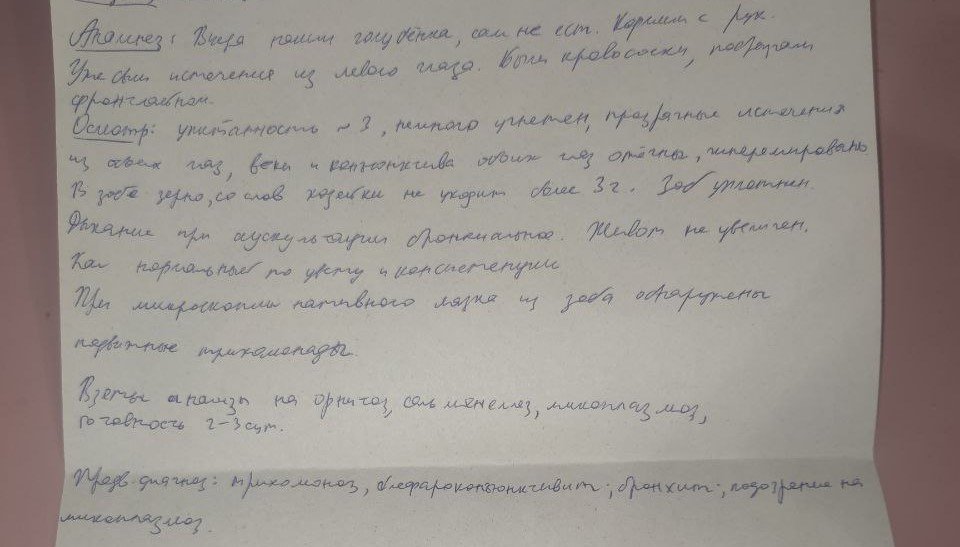 Анамнез: Вчера нашли голубёнка, сам не ест. Кормили с рук.
Уже были истечения из левого глаза. Были кровососки, побрызгали
фронтлайном.
Осмотр: упитанность ~ 3, немного угнетен, прозрачные истечения
из обеих глаз, веки и конъюнктива обоих глаз отёчны, гиперемированы
В зобе зерно, со слов хозяйки не уходит более 3 г. Зоб уплотнен.
Дыхание при аускультации бронхиальное. Живот не увеличен.
Кал нормальный по цвету и консистенции
При микроскопии нативного мазка из зоба обнаружены
подвижные трихомонады.
Взяты анализы на орнитоз, сальмонеллез, микоплазмоз,
готовность 2-3 сут.
Предв. диагноз: трихомоноз, блефароконъюнктивит; бронхит; подозрение на
микоплазмоз.